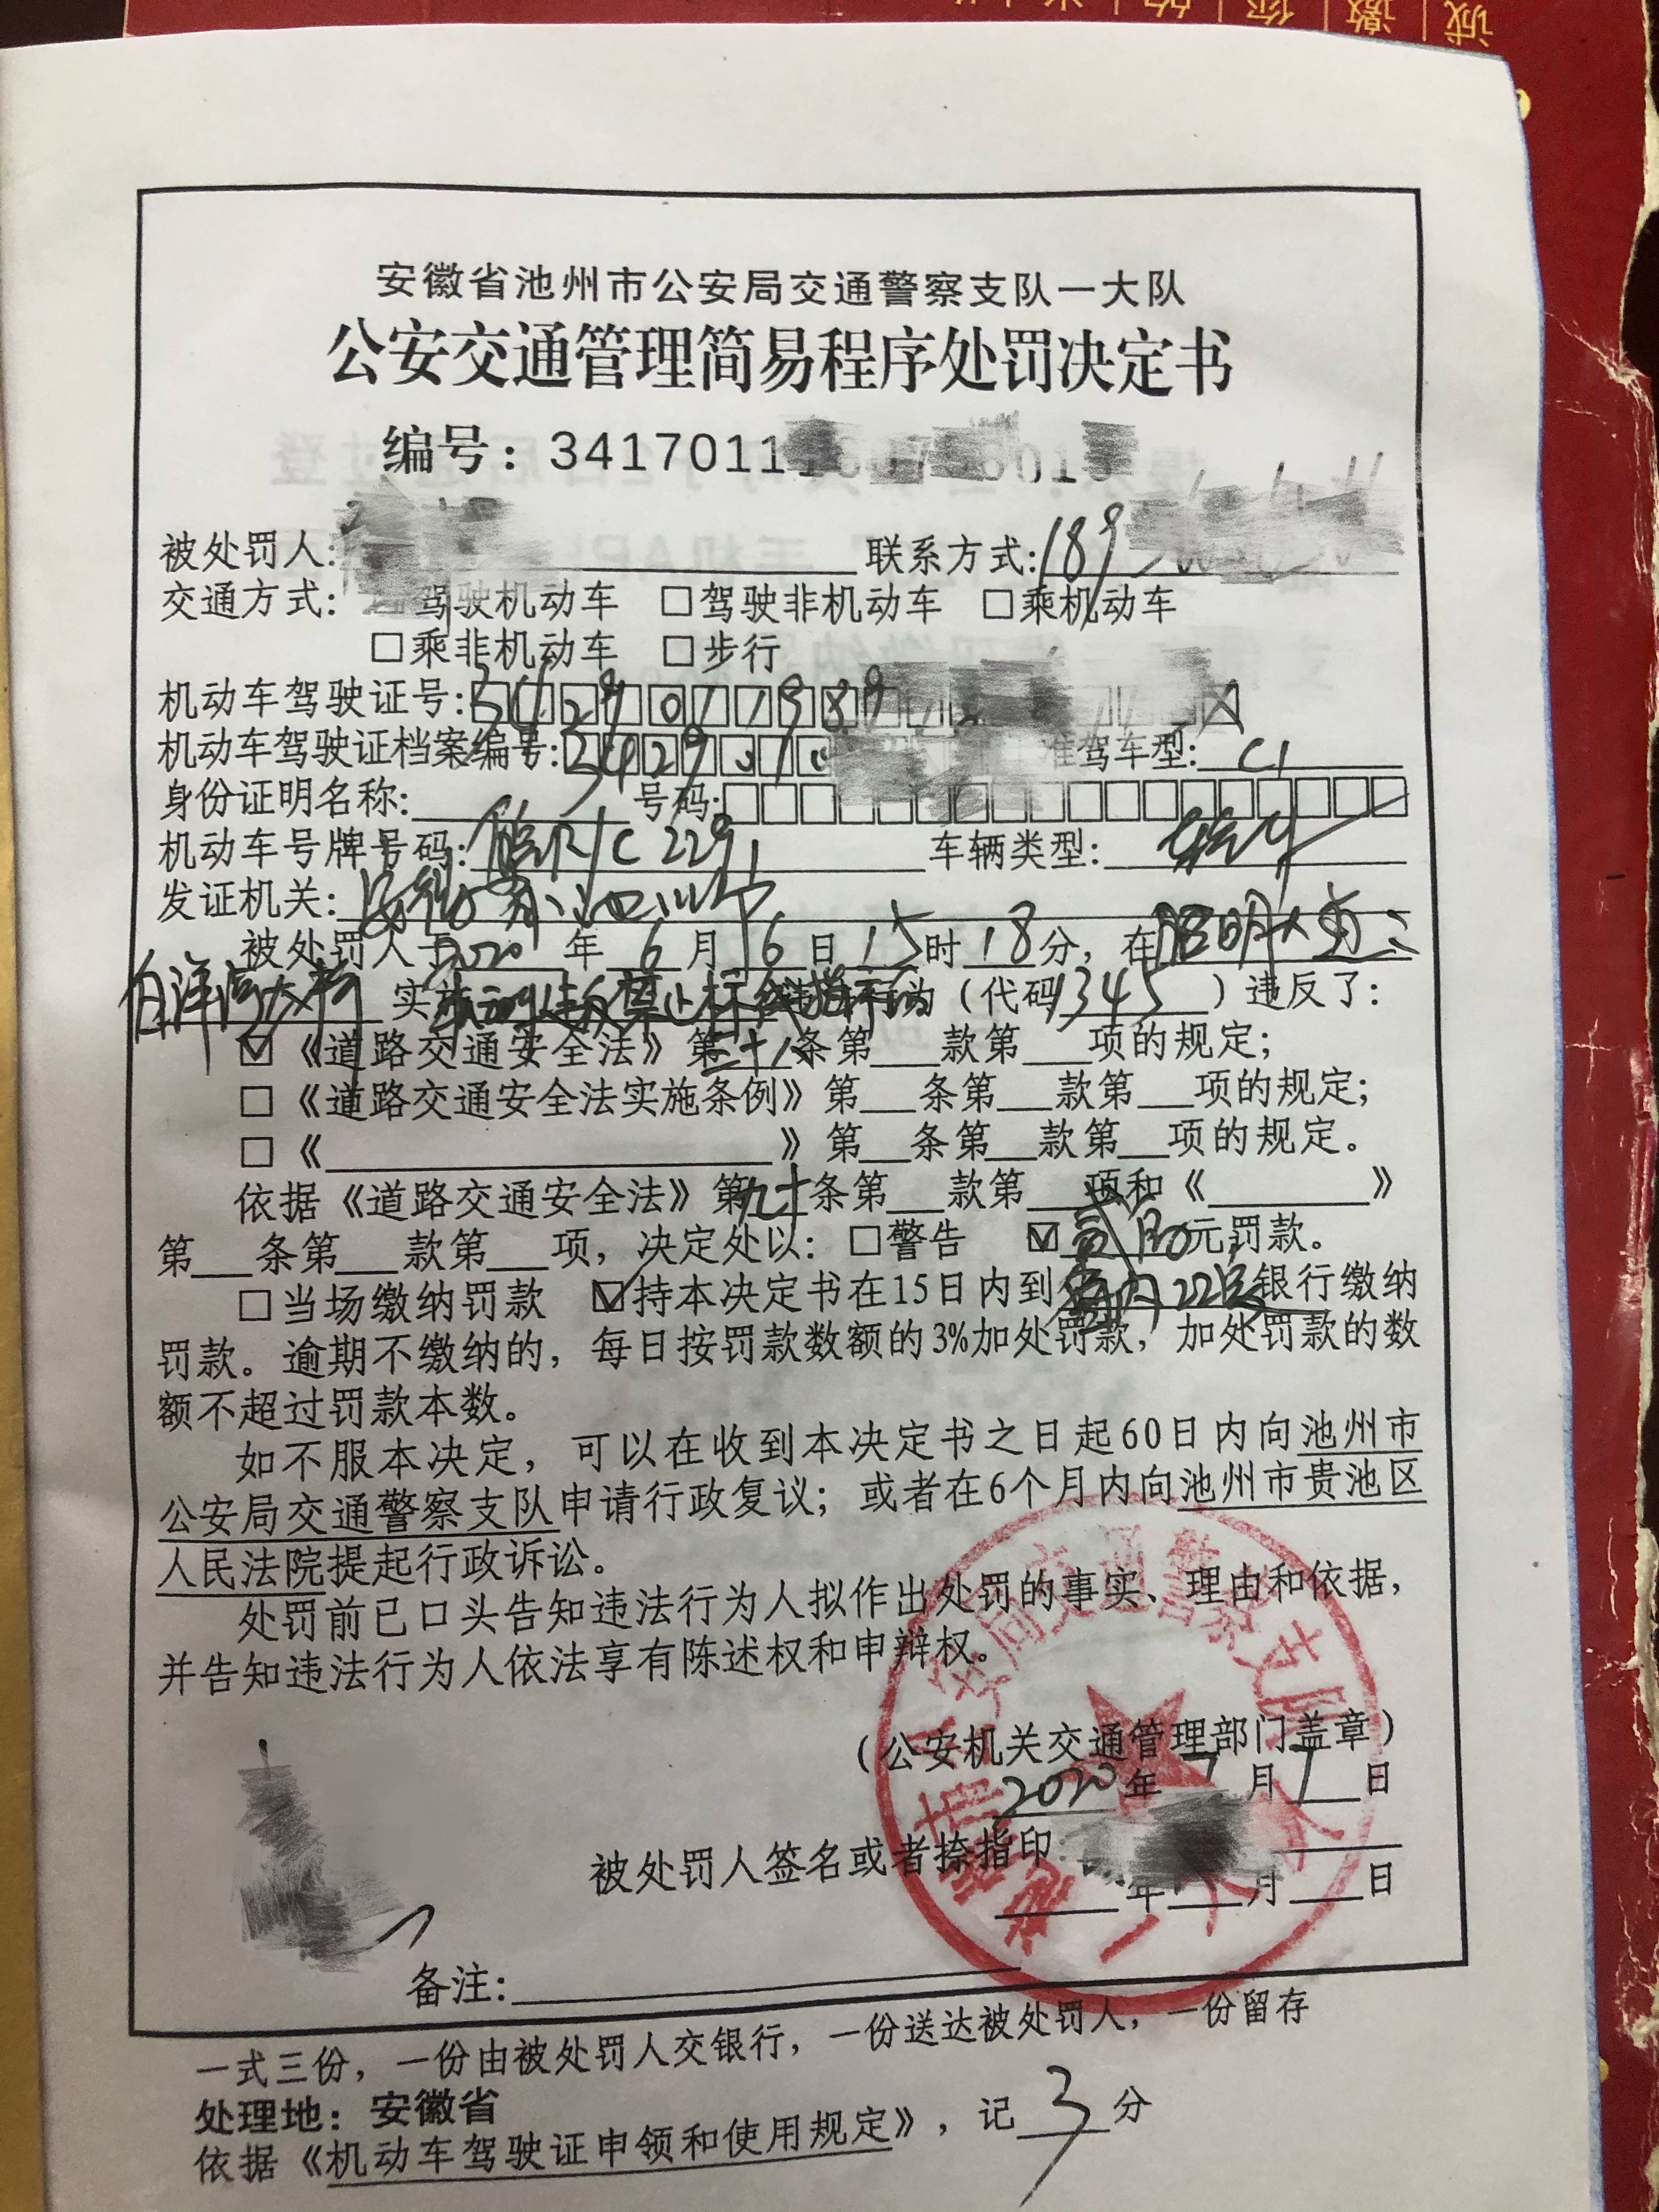 诚|邀|你|的
安徽省池州市公安局交通警察支队一大队
公安交通管理简易程序处罚决定书
编号：3417011
被处罚人: 联系方式:189
交通方式: 驾驶机动车 □驾驶非机动车 □乘机动车
□乘非机动车 □步行
机动车驾驶证号:3429011989 X
机动车驾驶证档案编号:342901 准驾车型: C1
身份证明名称: 号码:
机动车号牌号码:皖R1C229 车辆类型:
发证机关:安徽省池州市
被处罚人于2020年6月16日15时18分，在昭明大道
白洋河大桥 实施机动车违反禁止标线指示的违法行为（代码1345）违反了:
☑《道路交通安全法》第三十八条第__款第__项的规定;
□《道路交通安全法实施条例》第__条第__款第__项的规定;
□《 》第__条第__款第__项的规定。
依据《道路交通安全法》第九十条第__款第__项和《 》
第__条第__款第__项，决定处以: □警告 ☑贰佰元罚款。
□当场缴纳罚款 ☑持本决定书在15日内到 银行缴纳
罚款。逾期不缴纳的，每日按罚款数额的3%加处罚款，加处罚款的数
额不超过罚款本数。
如不服本决定，可以在收到本决定书之日起60日内向池州市
公安局交通警察支队申请行政复议；或者在6个月内向池州市贵池区
人民法院提起行政诉讼。
处罚前已口头告知违法行为人拟作出处罚的事实、理由和依据，
并告知违法行为人依法享有陈述权和申辩权。
（公安机关交通管理部门盖章）
2020年7月1日
被处罚人签名或者捺指印:
年__月__日
备注:
一式三份，一份由被处罚人交银行，一份送达被处罚人，一份留存
处理地：安徽省
依据《机动车驾驶证申领和使用规定》，记3分